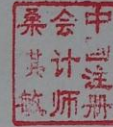 中国注册
会计师
桑其敏